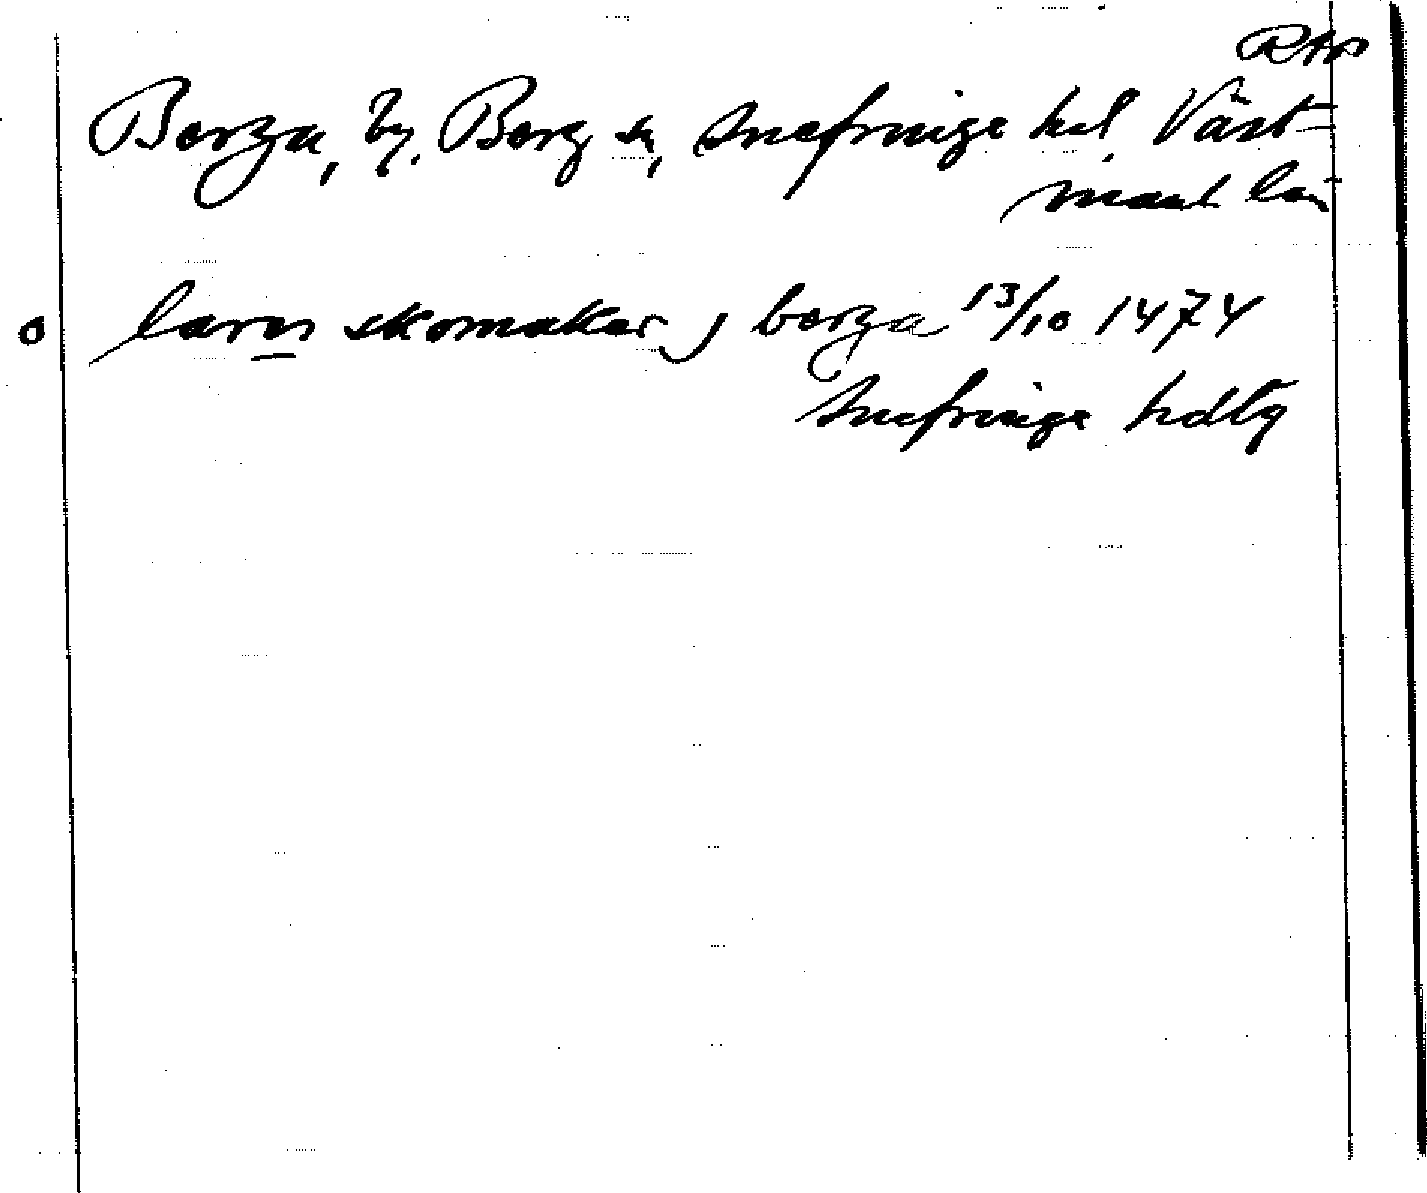 RAp
Berga, by, Berg sn, Snefringe hd, Väst-
manl län
o laren skomaker j berga 13/10 1474
Snefringe hdlg